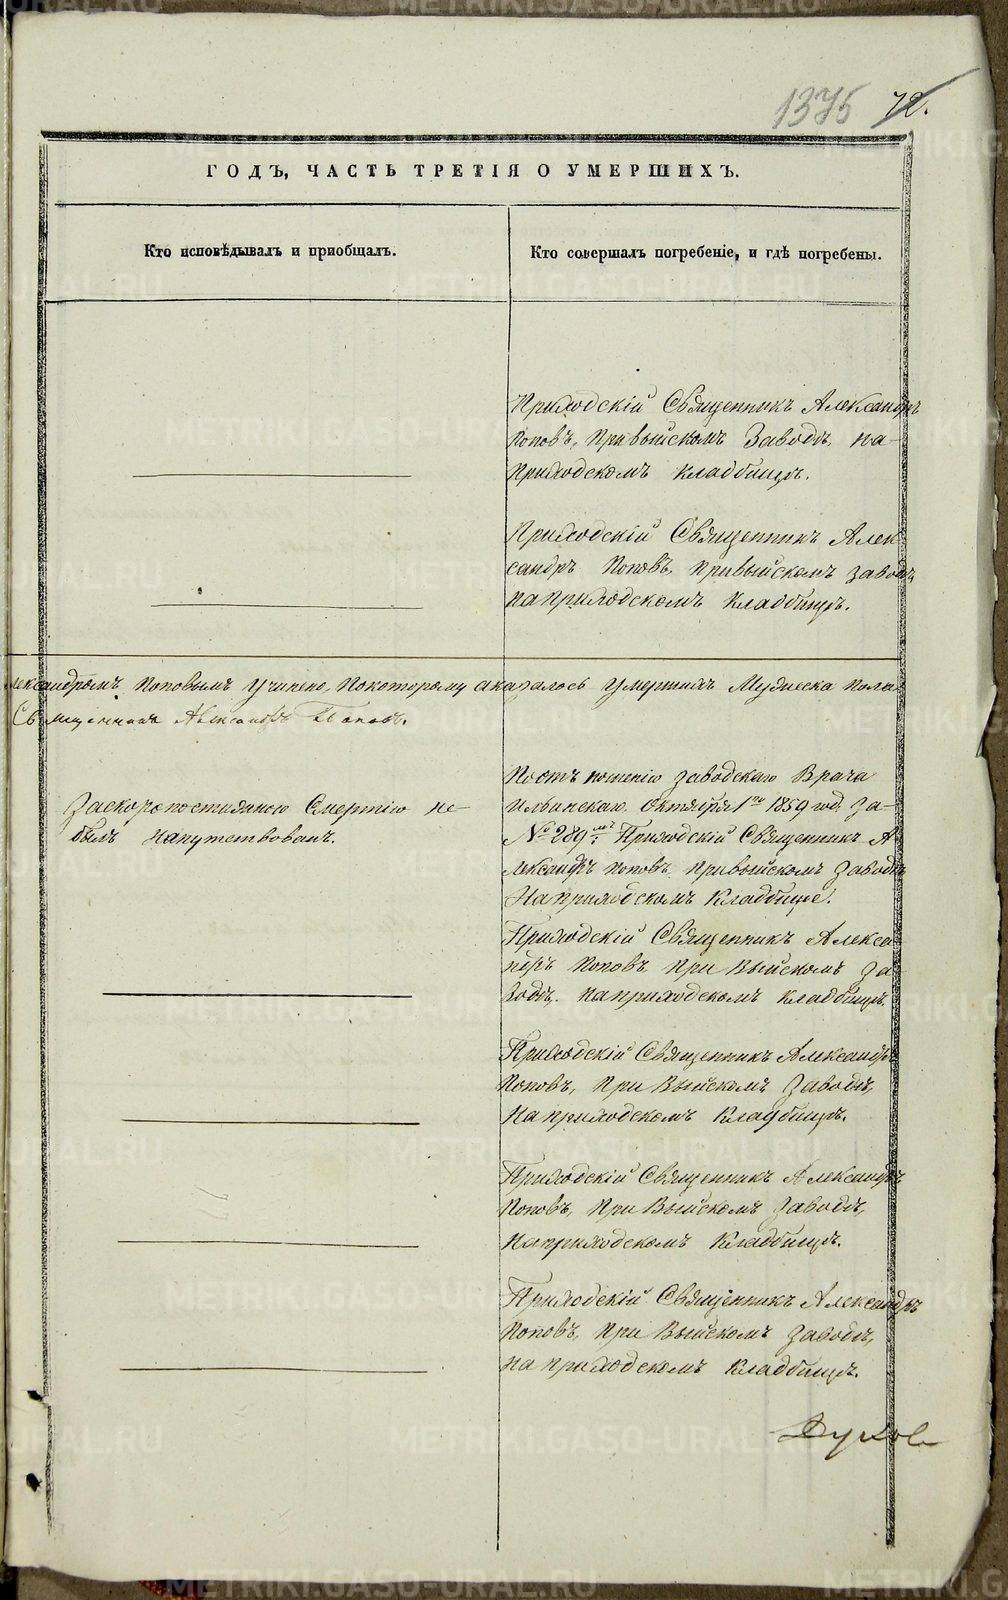 1375 72.
ГОДЪ, ЧАСТЬ ТРЕТІЯ О УМЕРШИХЪ.
Кто исповѣдывалъ и пріобщалъ.
Кто совершалъ погребеніе, и гдѣ погребены.
Приходскій Священникъ Александръ
Поповъ, При Выйскомъ Заводѣ, на
Приходскомъ кладбищѣ.
Приходскій Священникъ Алек
сандръ Поповъ, При Выйскомъ заводѣ,
на приходскомъ кладбищѣ.
лександромъ Поповымъ учинено, По которому оказалось умершихъ Мужеска пола
Священникъ Александръ Поповъ.
За скоропостижною Смертію не
былъ напутствованъ.
По отъношенію заводскаго Врача
Ильинскаго Октября 1го 1859 год. за
№ 289мъ Приходскій Священникъ А
лександръ Поповъ, При Выйскомъ Заводѣ
На приходскомъ кладбище.
Приходскій Священникъ Алекса
ндръ Поповъ При Выйскомъ За
водѣ, на приходскомъ кладбищѣ.
Приходскій Священникъ Александръ
Поповъ, При Выйскомъ Заводѣ,
На приходскомъ кладбищѣ.
Приходскій Священникъ Александръ
Поповъ, При Выйскомъ Заводѣ,
На приходскомъ кладбищѣ.
Приходскій Священникъ Александръ
Поповъ, При Выйскомъ Заводѣ,
на приходскомъ кладбищѣ.
METRIKI.GASO-URAL.RU